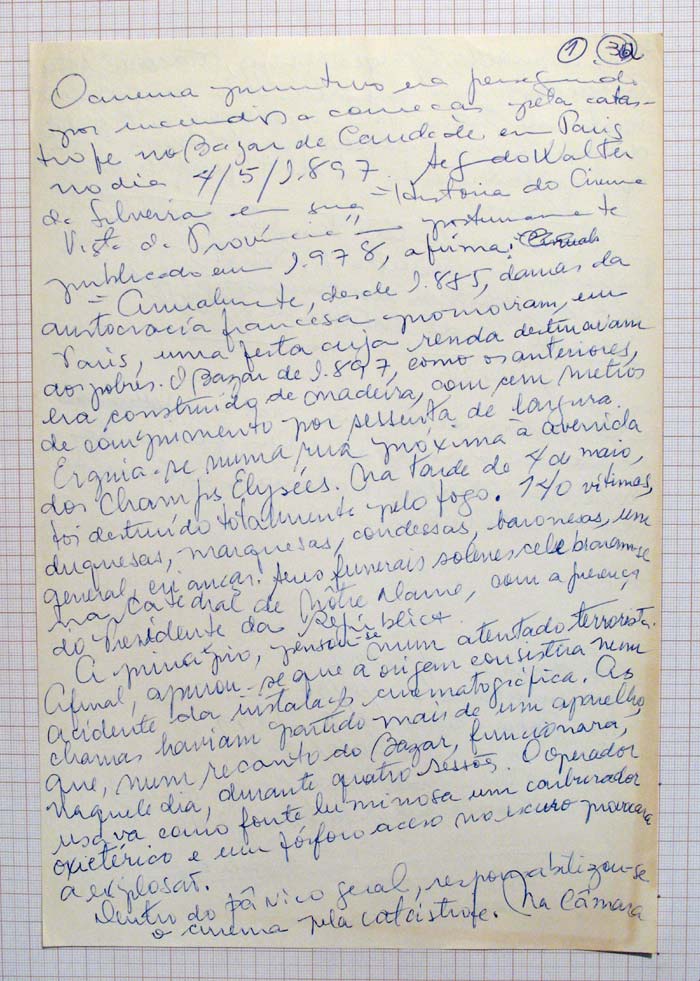 1 36
O cinema primitivo era perseguido
por incendios a começar pela catas-
trofe no Bazar de Caridade em Paris
no dia 4/5/1.897. Segundo Walter
da Silveira em sua "História do Cinema
Vista da Província" postumamente
publicado em 1.978, afirma:
= Anualmente, desde 1.885, damas da
aristocracia francesa promoviam, em
Paris, uma festa cuja renda destinavam
aos pobres. O Bazar de 1.897, como os anteriores,
era construído de madeira, com cem metros
de comprimento por sessenta de largura.
Erguia-se numa rua próxima à avenida
dos Champs Elysées. Na tarde de 4 de maio,
foi destruído totalmente pelo fogo. 140 vítimas,
duquesas, marquesas, condessas, baronesas, um
general, crianças. Seus funerais solenes celebraram-se
na catedral de Nôtre Dame, com a presença
do Presidente da República.
A princípio, pensou-se num atentado terrorista.
Afinal, apurou-se que a origem consistira num
acidente da instalação cinematográfica. As
chamas haviam partido mais de um aparelho
que, num recanto do Bazar, funcionara,
naquele dia, durante quatro sessões. O operador
usava como fonte luminosa um carburador
oxietérico e um fósforo aceso no escuro provocara
a explosão.
Dentro do pânico geral, responsabilizou-se
o cinema pela catástrofe. Na Câmara